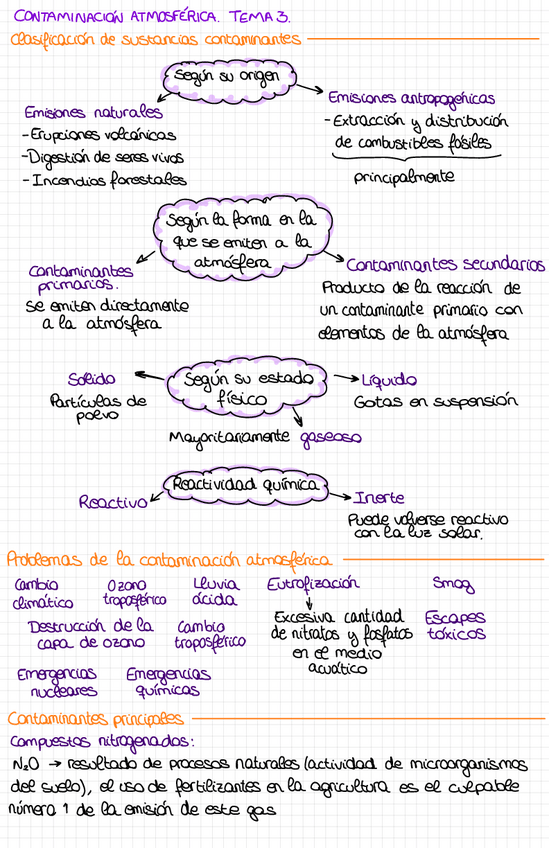 CONTAMINACIÓN ATMOSFÉRICA. TEMA 3.
Clasificación de sustancias contaminantes
Según su origen
Emisiones naturales
-Erupciones volcánicas
-Digestión de seres vivos
- Incendios forestales
Emisiones antropogénicas
- Extracción y distribución
de combustibles fósiles
principalmente
Según la forma en la
que se emiten a la
atmósfera
Contaminantes
primarios.
Se emiten directamente
a la atmósfera
Contaminantes secundarios
Producto de la reacción de
un contaminante primario con
elementos de la atmósfera
Según su estado
físico
Sólido
Partículas de
polvo
Líquido
Gotas en suspensión
Mayoritariamente gaseoso
Reactividad química
Reactivo
Inerte
Puede volverse reactivo
con la luz solar.
Problemas de la contaminación atmosférica
Cambio
climático
Ozono
troposférico
Lluvia
ácida
Eutrofización
Excesiva cantidad
de nitratos y fosfatos
en el medio
acuático
Smog
Destrucción de la
capa de ozono
Cambio
troposférico
Escapes
tóxicos
Emergencias
nucleares
Emergencias
químicas
Contaminantes principales
Compuestos nitrogenados:
N₂O → resultado de procesos naturales (actividad de microorganismos
del suelo), el uso de fertilizantes en la agricultura es el culpable
número 1 de la emisión de este gas